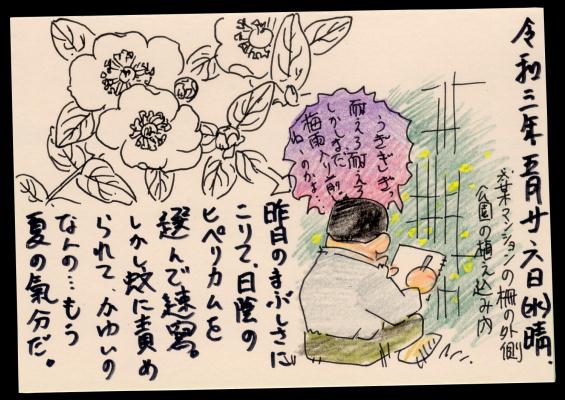 令和三年五月廿六日(水)晴.
マンションの柵の外側
公園の植え込み内
うぎぎしぎ。
耐えろ耐えろ
しかしまだ
梅雨入り前
昨日のまぶしさに
こりて、日陰の
ヒペリカムを
選んで速寫。
しかし蚊に責め
られて、かゆいの
なんの…もう
夏の氣分だ。